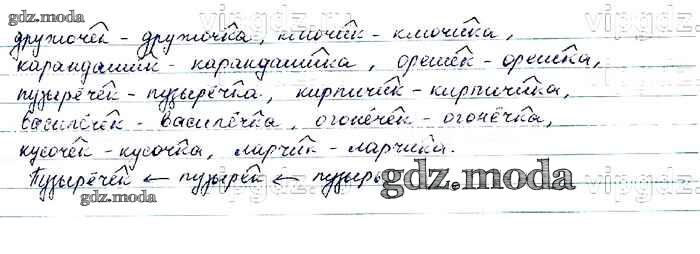 gdz.moda
vipgdz.
дружочек - дружочка, ключик - ключика,
карандашик - карандашика, орешек - орешка,
пузырёчек - пузырёчка, кирпичик - кирпичика,
василёчек - василёчка, огонёчек - огонёчка,
кусочек - кусочка, ларчик - ларчика.
Пузырёчек ← пузырёк ← пузырь
gdz.moda
gdz.moda